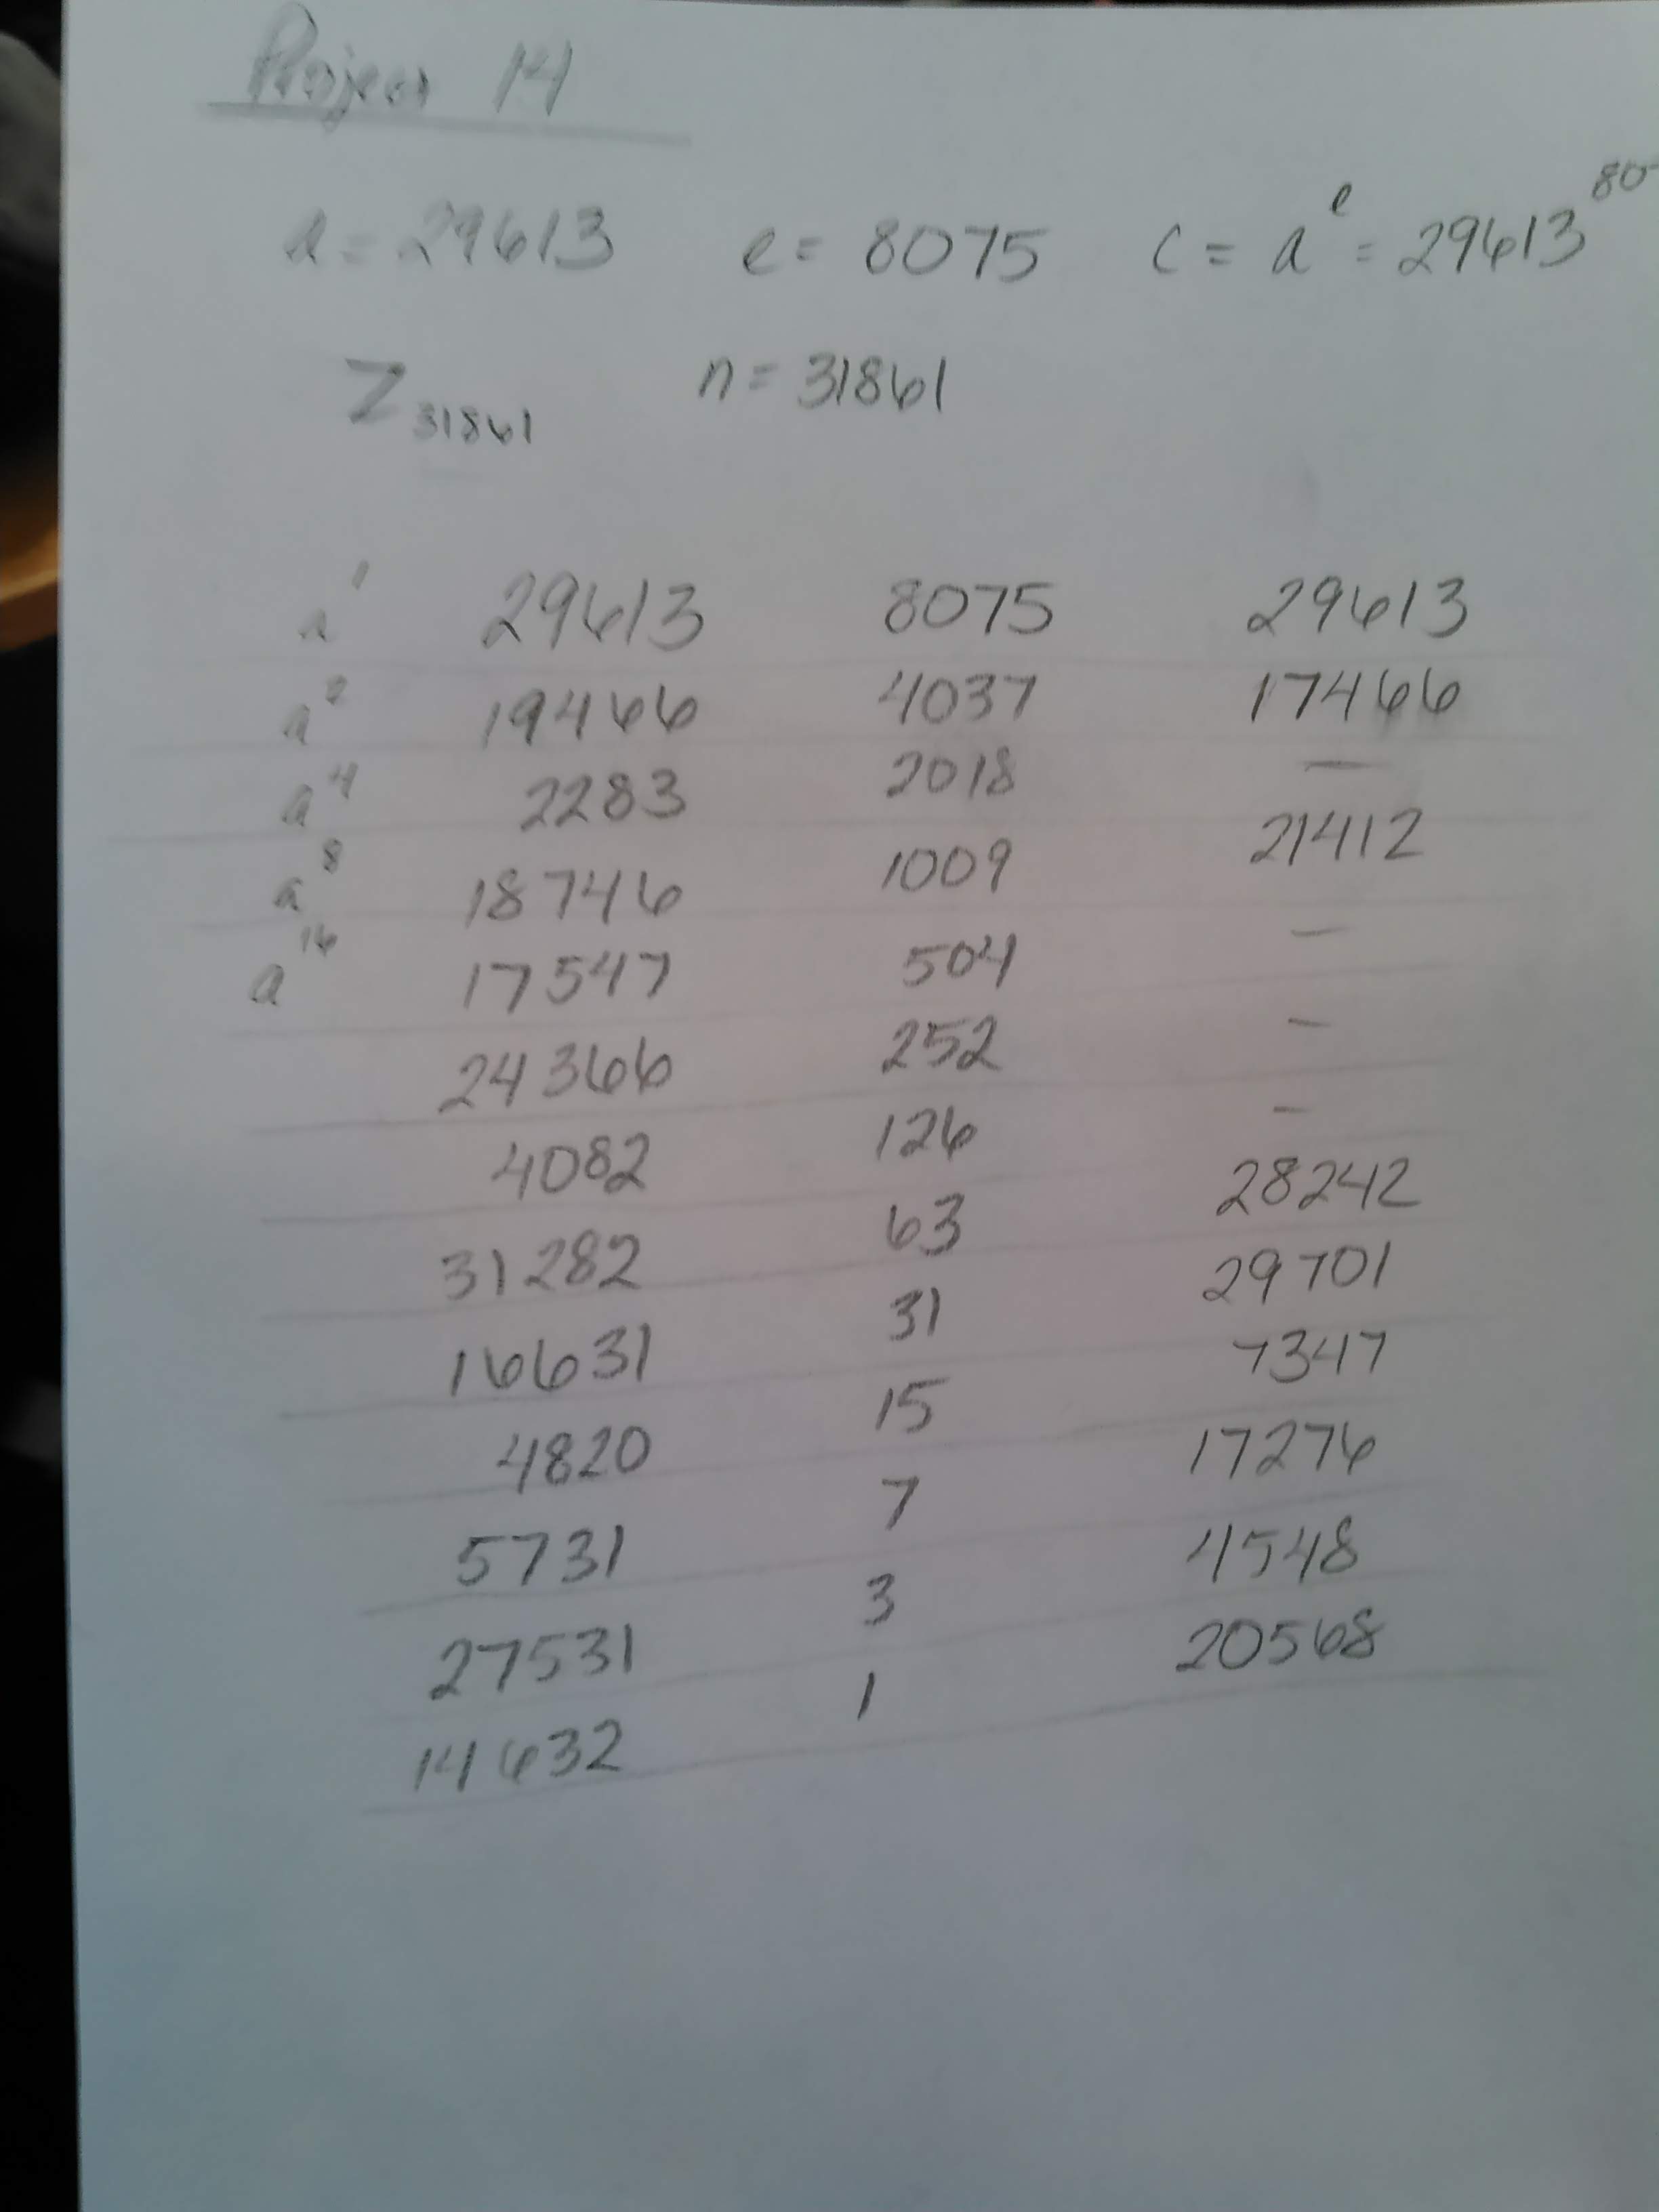 Project 14
a = 29613 e = 8075 c = a^e = 29613^80
Z_31861 n = 31861
a^1 29613 8075 29613
a^2 19466 4037 17466
a^4 2283 2018 —
a^8 18746 1009 21412
a^16 17547 504 —
24366 252 —
4082 126 —
31282 63 28242
16631 31 29701
4820 15 7347
5731 7 17276
27531 3 4548
14632 1 20568